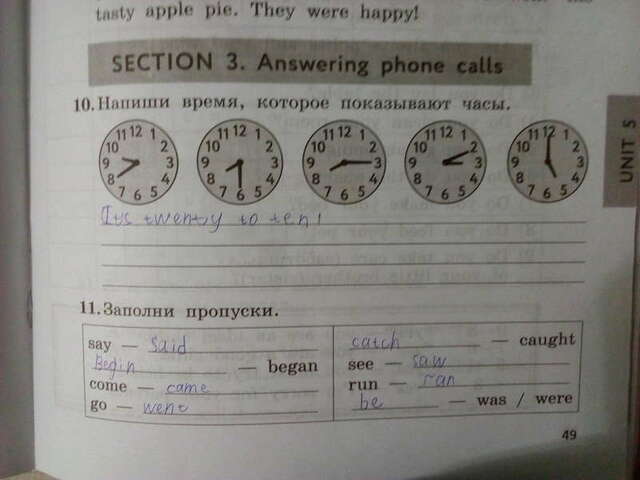 tasty apple pie. They were happy!
SECTION 3. Answering phone calls
10. Напиши время, которое показывают часы.
11 12 1
10 2
9 3
8 4
7 6 5
11 12 1
10 2
9 3
8 4
7 6 5
11 12 1
10 2
9 3
8 4
7 6 5
11 12 1
10 2
9 3
8 4
7 6 5
11 12 1
10 2
9 3
8 4
7 6 5
UNIT 5
Its twenty to ten!
11. Заполни пропуски.
say — said
Begin — began
come — came
go — went
catch — caught
see — saw
run — ran
be — was / were
49